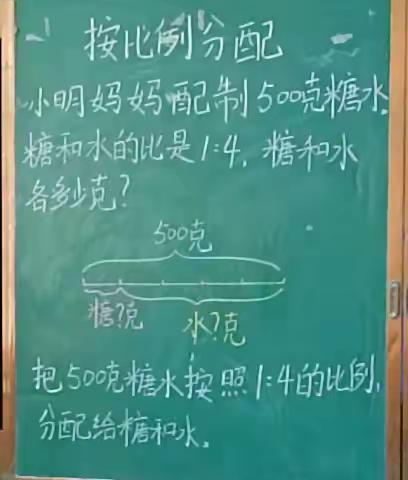 按比例分配
小明妈妈配制500克糖水,
糖和水的比是1:4,糖和水
各多少克?
500克
糖?克 水?克
把500克糖水按照1:4的比例,
分配给糖和水。